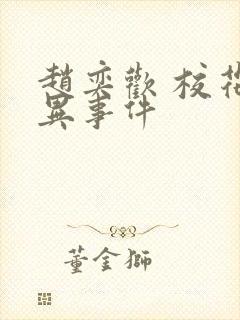 趙奕歡 校花
異事件
董金獅